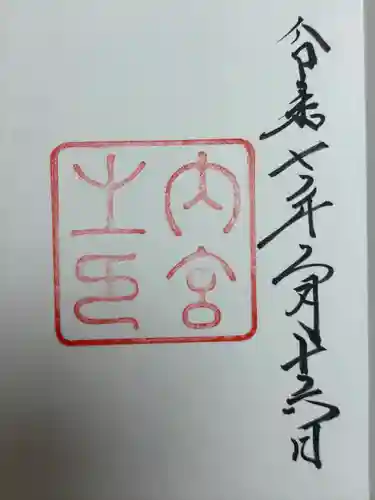 令和七年二月二十六日
内宮
之印